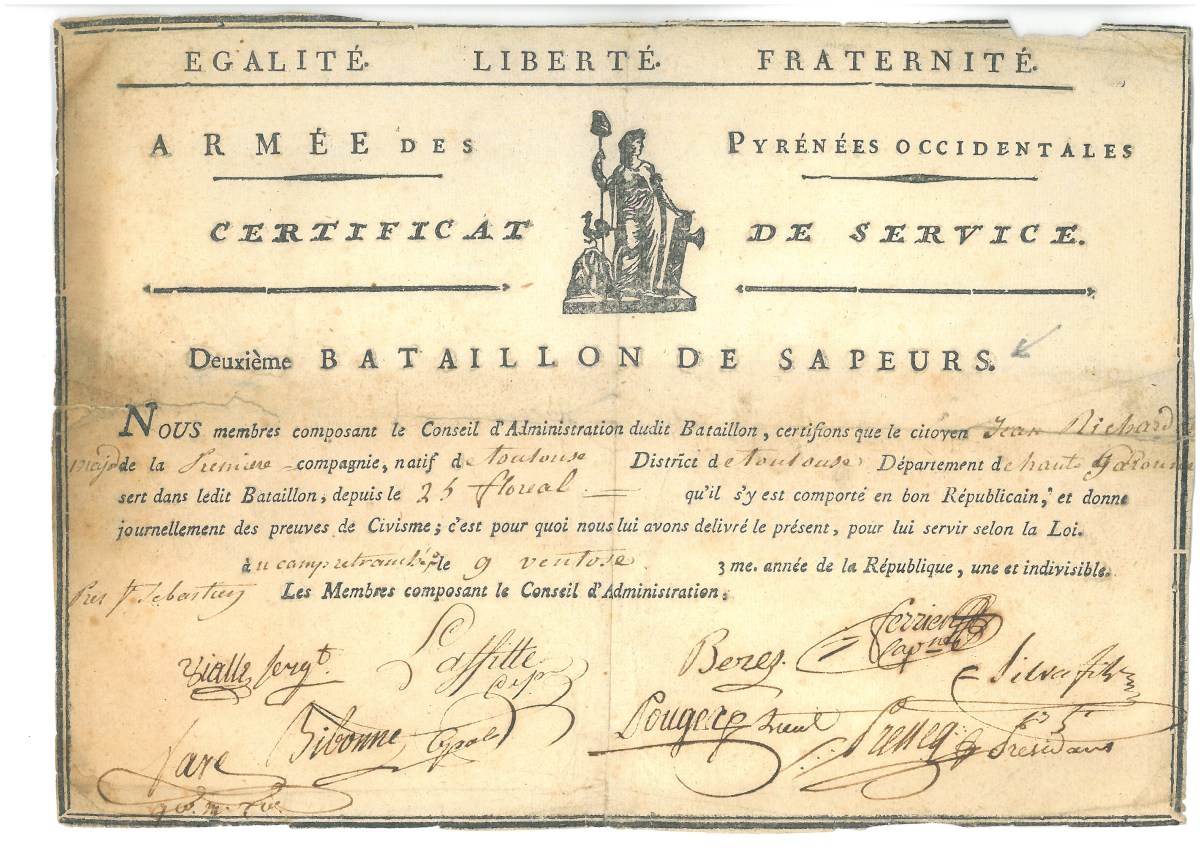 EGALITÉ. LIBERTÉ. FRATERNITÉ.
ARMÉE DES PYRÉNÉES OCCIDENTALES
CERTIFICAT DE SERVICE.
Deuxième BATAILLON DE SAPEURS.
NOUS membres composant le Conseil d'Administration dudit Bataillon, certifions que le citoyen Jean Richard
major de la Premiere compagnie, natif de toulouse District de toulouse Département de haute garonne
sert dans ledit Bataillon, depuis le 25 floreal qu'il s'y est comporté en bon Républicain, et donne
journellement des preuves de Civisme; c'est pour quoi nous lui avons delivré le présent, pour lui servir selon la Loi.
à u camp retranché le 9 ventose 3 me. année de la République, une et indivisible.
Pres St Sebastien Les Membres composant le Conseil d'Administration,
Vialle sergt. Laffitte Beres. ferrien Silva fils
fare Bibonne Pouger Pressecq Presidant